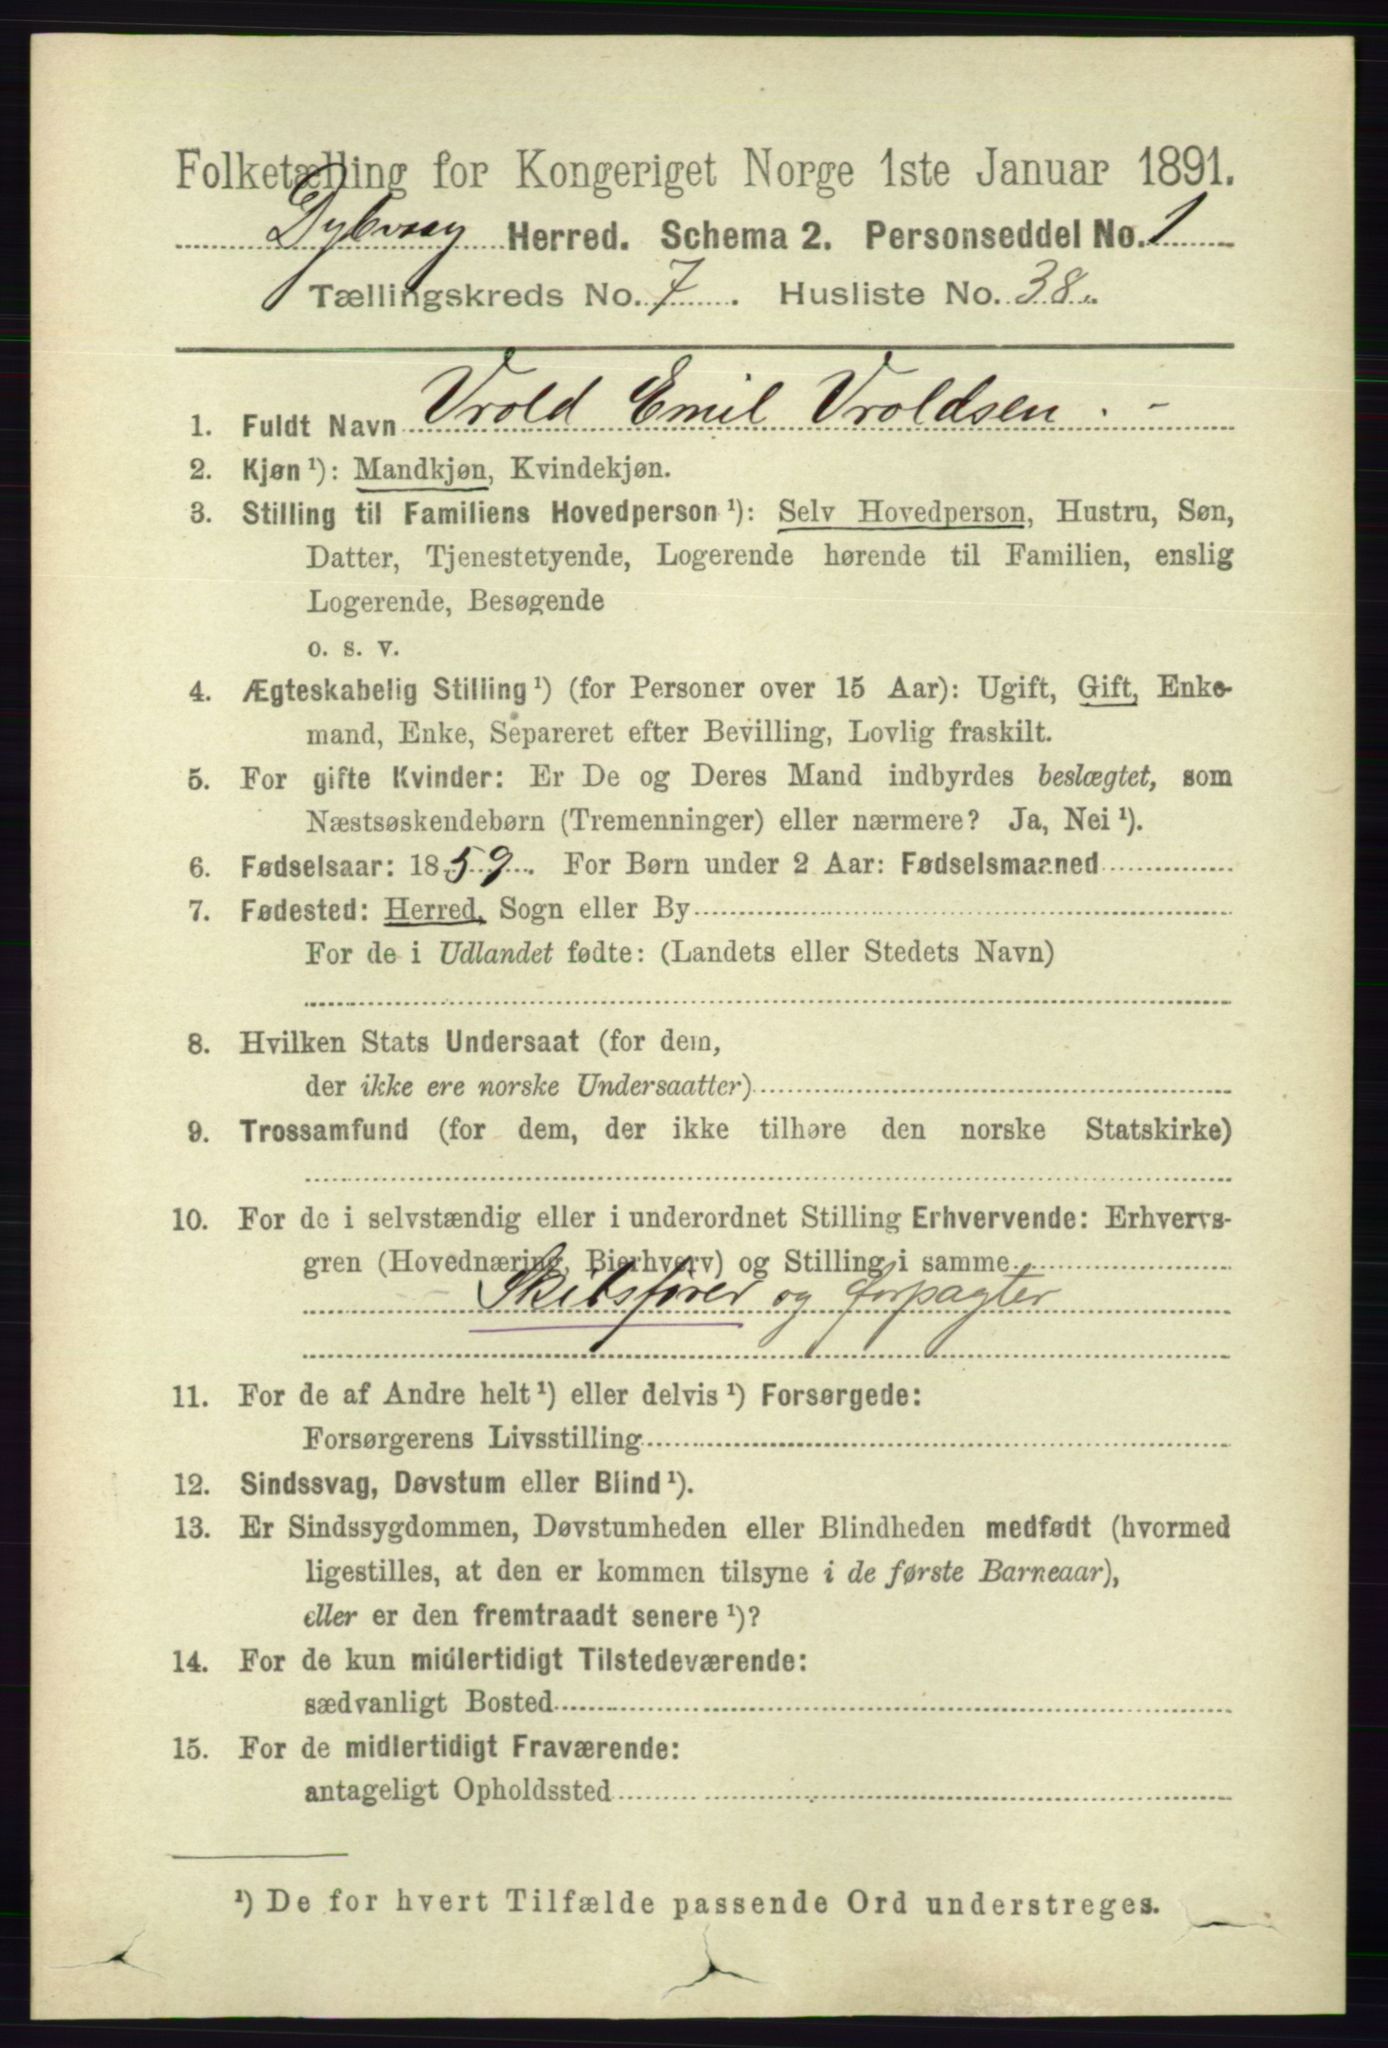 Folketælling for Kongeriget Norge 1ste Januar 1891.
Dybvaag Herred. Schema 2. Personseddel No. 1
Tællingskreds No. 7. Husliste No. 38.
1. Fuldt Navn Vrold Emil Vroldsen. -
2. Kjøn¹): Mandkjøn, Kvindekjøn.
3. Stilling til Familiens Hovedperson¹): Selv Hovedperson, Hustru, Søn,
Datter, Tjenestetyende, Logerende hørende til Familien, enslig
Logerende, Besøgende
o. s. v.
4. Ægteskabelig Stilling¹) (for Personer over 15 Aar): Ugift, Gift, Enke-
mand, Enke, Separeret efter Bevilling, Lovlig fraskilt.
5. For gifte Kvinder: Er De og Deres Mand indbyrdes beslægtet, som
Næstsøskendebørn (Tremenninger) eller nærmere? Ja, Nei¹).
6. Fødselsaar: 1859. For Børn under 2 Aar: Fødselsmaaned
7. Fødested: Herred, Sogn eller By
For de i Udlandet fødte: (Landets eller Stedets Navn)
8. Hvilken Stats Undersaat (for dem,
der ikke ere norske Undersaatter)
9. Trossamfund (for dem, der ikke tilhøre den norske Statskirke)
10. For de i selvstændig eller i underordnet Stilling Erhvervende: Erhvervs-
gren (Hovednæring, Bierhverv) og Stilling i samme
Skibsfører og forpagter
11. For de af Andre helt¹) eller delvis¹) Forsørgede:
Forsørgerens Livsstilling
12. Sindssvag, Døvstum eller Blind¹).
13. Er Sindssygdommen, Døvstumheden eller Blindheden medfødt (hvormed
ligestilles, at den er kommen tilsyne i de første Barneaar),
eller er den fremtraadt senere¹)?
14. For de kun midlertidigt Tilstedeværende:
sædvanligt Bosted
15. For de midlertidigt Fraværende:
antageligt Opholdssted
¹) De for hvert Tilfælde passende Ord understreges.